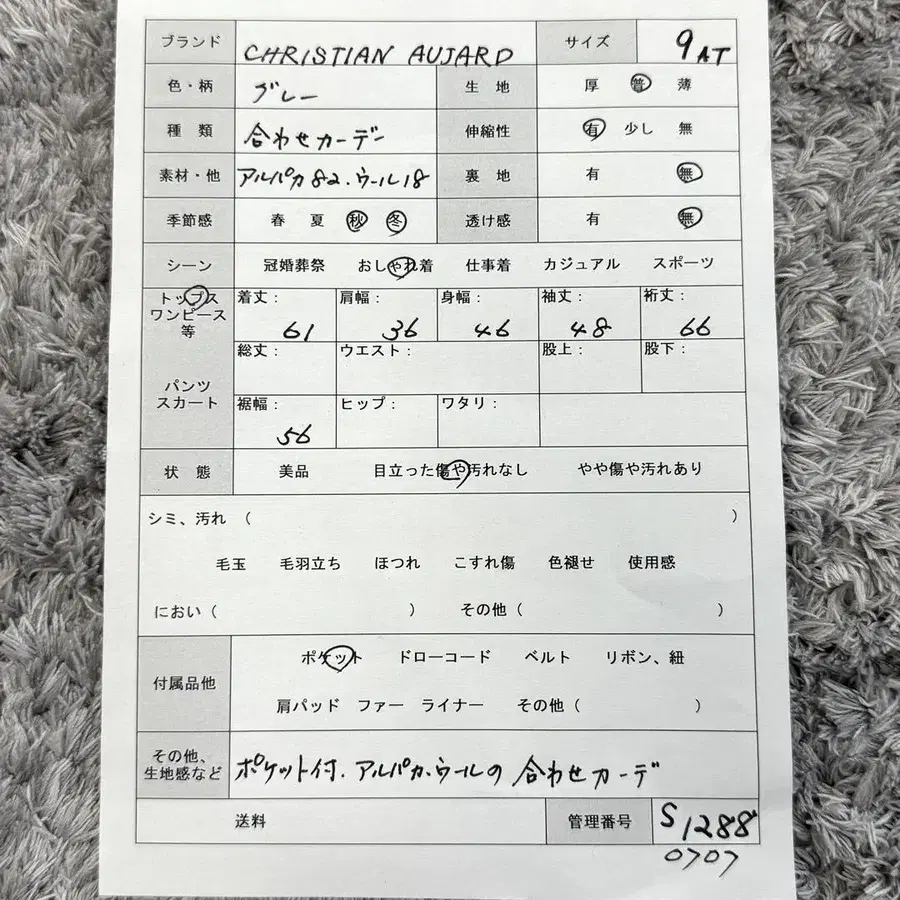 ブランド CHRISTIAN AUJARD サイズ 9AT
色・柄 グレー 生地 厚 普 薄
種類 合わせカーデ 伸縮性 有 少し 無
素材・他 アルパカ82.ウール18 裏地 有 無
季節感 春 夏 秋 冬 透け感 有 無
シーン 冠婚葬祭 おしゃれ着 仕事着 カジュアル スポーツ
トップス
ワンピース
等
着丈: 肩幅: 身幅: 袖丈: 裄丈:
61 36 46 48 66
パンツ
スカート
総丈: ウエスト: 股上: 股下:
裾幅: ヒップ: ワタリ:
56
状態 美品 目立った傷や汚れなし やや傷や汚れあり
シミ、汚れ ( )
毛玉 毛羽立ち ほつれ こすれ傷 色褪せ 使用感
におい( ) その他( )
付属品他 ポケット ドローコード ベルト リボン、紐
肩パッド ファー ライナー その他( )
その他、
生地感など
ポケット付.アルパカ.ウールの合わせカーデ
送料 管理番号 S1288
0707